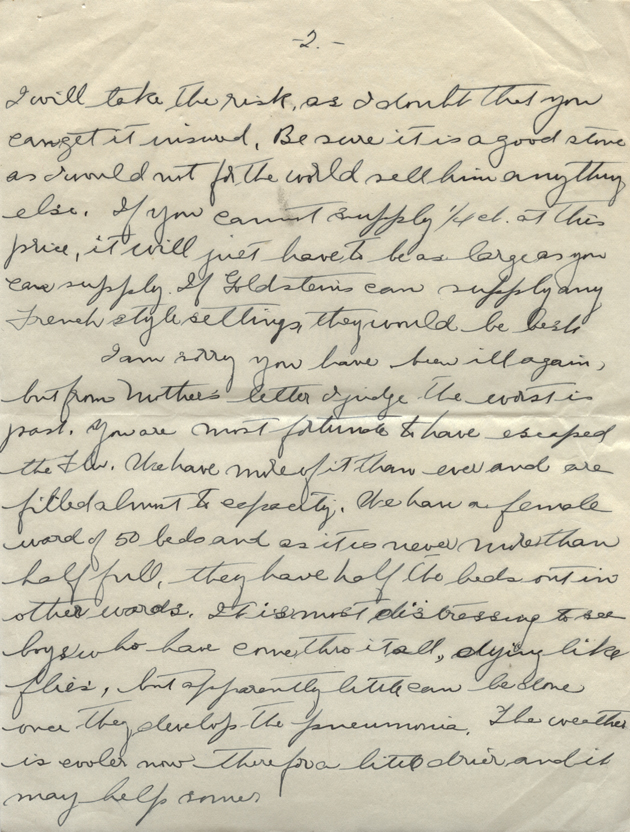 -2.-
I will take the risk, as I doubt that you
can get it insured. Be sure it is a good stone
as I would not for the world sell him anything
else. If you cannot supply 1/4 ct. at this
price, it will just have to be as large as you
can supply. If Goldsteins can supply any
French style settings, they would be best.
I am sorry you have been ill again,
but from Mother's letter I judge the worst is
past. You are most fortunate to have escaped
the Flu. We have more of it than ever and are
filled almost to capacity. We have a female
ward of 50 beds and as it is never more than
half full, they have half the beds out in
other wards. It is most distressing to see
boys who have come thro it all, dying like
flies, but apparently little can be done
once they develop the pneumonia. The weather
is cooler now therefor a little drier and it
may help some.